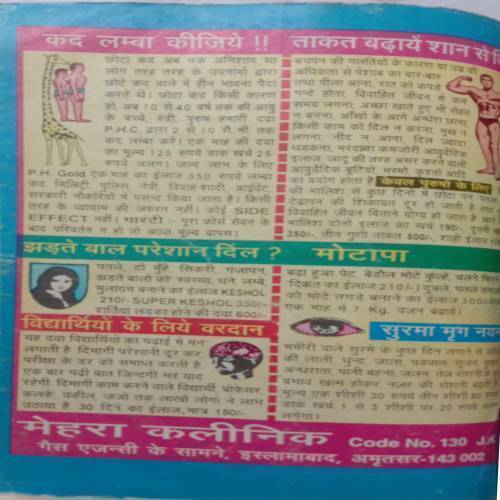 कद लम्बा कीजिये !!
छोटा कद अब तक अभिशाप था
लोग तरह तरह के उपनामों द्वारा
छोटे कद वाले में हीन भावना पैदा
करते थे। छोटा कद किसी कारण
हो, अब 10 से 40 वर्ष तक की आयु
के बच्चे, स्त्री, पुरुष हमारी दवा
P.H.C. द्वारा 2 से 10 सैं.मी तक
कद लम्बा करें। एक माह की दवा
का मूल्य 125 रुपये डाक खर्च 25
रुपये अलग। जल्द लाभ के लिए
P.H. Gold एक माह का ईलाज 350 रुपये लम्बा
कद मिलिट्री, पुलिस, नेवी, विवाह-शादी, प्राईवेट,
सरकारी नौकरियों में पसन्द किया जाता है। किसी
तरह के व्यायाम की जरूरत नहीं। कोई SIDE
EFFECT नहीं। गारन्टी :- पूरा कोर्स सेवन के
बाद परिवर्तन न हो तो आधा मूल्य वापस।
ताकत बढ़ायें शान से
बचपन की गलतियों के कारण या
अधिकता से पेशाब का बार-बार
तथा पीला आना, रात को कपड़े
गन्दे होना, विवाहित जीवन में कम
समय लगना, अच्छा खाते हुए भी सेहत
न बनना, आँखों के आगे अन्धेरा छाना
किसी काम को दिल न करना, भूख न
लगना, नींद न आना दिल ज्यादा
धड़कना, मरदाना कमजोरी आयुर्वेदिक
ईलाज जादू की तरह असर करने वाले
आयुर्वेदिक बूटियों, भस्मों कुश्तों आदि
का प्रयोग होता है केवल पुरुषों के लिए
की मालिश से कुछ दिनों में छोटा पन, पतला
टेढ़ापन की शिकायत दूर हो जाती है
विवाहित जीवन बिताने योग्य हो जाता है खाने
मालिश दोनों ईलाज का खर्च 190/-
350/-, तीन गुणी ताकत 500/-, शाही ईलाज
झड़ते बाल परेशान दिल ?
पतले, दो मुँहे, सिकरी, गंजापन,
झड़ते बालों को स्वस्थ्य, घने, लम्बे,
मुलायम बनाने का ईलाज KESHOL
210/- SUPER KESHOL 350/-
शर्तिया लड़का होने की दवा 600/-
मोटापा
बढ़ा हुआ पेट, बेडौल मोटे कुल्हे, चलने फिरने
दिक्कत का ईलाज 210/- । दुबले, पतले
को मोटे तगड़े बनाने का ईलाज 300/-
एक माह में 7 Kg. वजन बढ़ायें।
विद्यार्थियों के लिये वरदान
यह दवा विद्यार्थियों का पढ़ाई में मन
लगाती है दिमागी परेशानी दूर कर
परीक्षा के डर को समाप्त करती है
एक बार पढ़ी बात जिन्दगी भर याद
रहेगी। दिमागी काम करने वाले विद्यार्थी, प्रोफेसर
कलर्क, वकील, जजों तक लाखों लोगों ने लाभ
उठाया है 30 दिन का ईलाज, मात्र 150/-
सुरमा मृग नयन
ममीरी वाले सुरमे के कुछ दिन लगाने से
की लाली, धुन्द, जाला, पड़वाल, सुजन,
अन्धराता, पानी बहना, जलन,
प्रभाव खत्म होकर नजर की शीशी
मूल्य एक शीशी 30 रुपये तीन शीशी 80
डाक खर्च 1 से 3 शीशी पर 20 रुपये
लगेगा।
मेहरा कलीनिक Code No. 130 J.K
गैस एजन्सी के सामने, इस्लामाबाद, अमृतसर-143 002